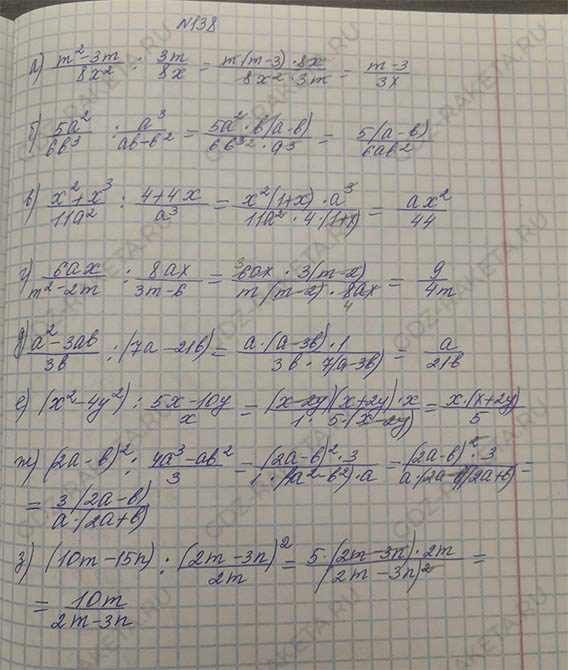 №138
а) (m² - 3m)/(8x²) : (3m)/(8x) = (m(m-3)·8x)/(8x²·3m) = (m-3)/(3x)
б) (5a²)/(6b³) : (a³)/(ab-b²) = (5a²·b(a-b))/(6b³²·a³) = (5(a-b))/(6ab²)
в) (x²+x³)/(11a²) : (4+4x)/(a³) = (x²(1+x)·a³)/(11a²·4(1+x)) = (ax²)/(44)
г) (6ax)/(m²-2m) : (8ax)/(3m-6) = (³6ax·3(m-2))/(m(m-2)·8ax 4) = (9)/(4m)
д) (a²-3ab)/(3b) : (7a-21b) = (a·(a-3b)·1)/(3b·7(a-3b)) = (a)/(21b)
е) (x²-4y²) : (5x-10y)/(x) = ((x-2y)(x+2y)·x)/(1·5·(x-2y)) = (x·(x+2y))/(5)
ж) (2a-b)² : (4a³-ab²)/(3) = ((2a-b)²·3)/(1·(4a²-b²)·a) = ((2a-b)²·3)/(a·(2a-b)(2a+b)) =
= (3(2a-b))/(a·(2a+b))
з) (10m-15n) : (2m-3n)²/(2m) = (5·(2m-3n)·2m)/((2m-3n)²) =
= (10m)/(2m-3n)
GDZ-RAKETA.RU